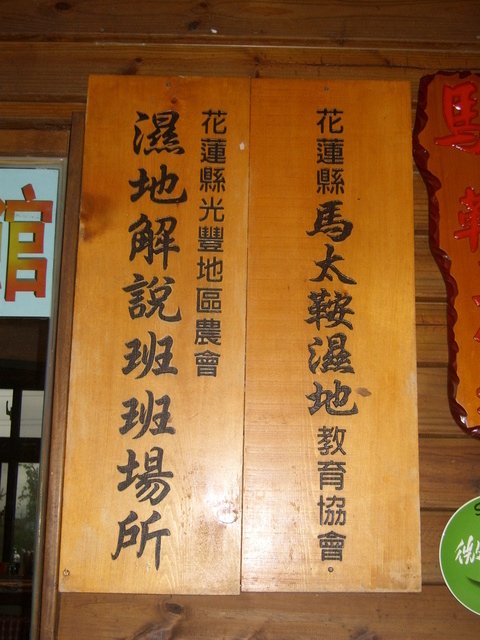 花蓮縣馬太鞍濕地教育協會
花蓮縣光豐地區農會
濕地解說班班場所
馬鞍
館